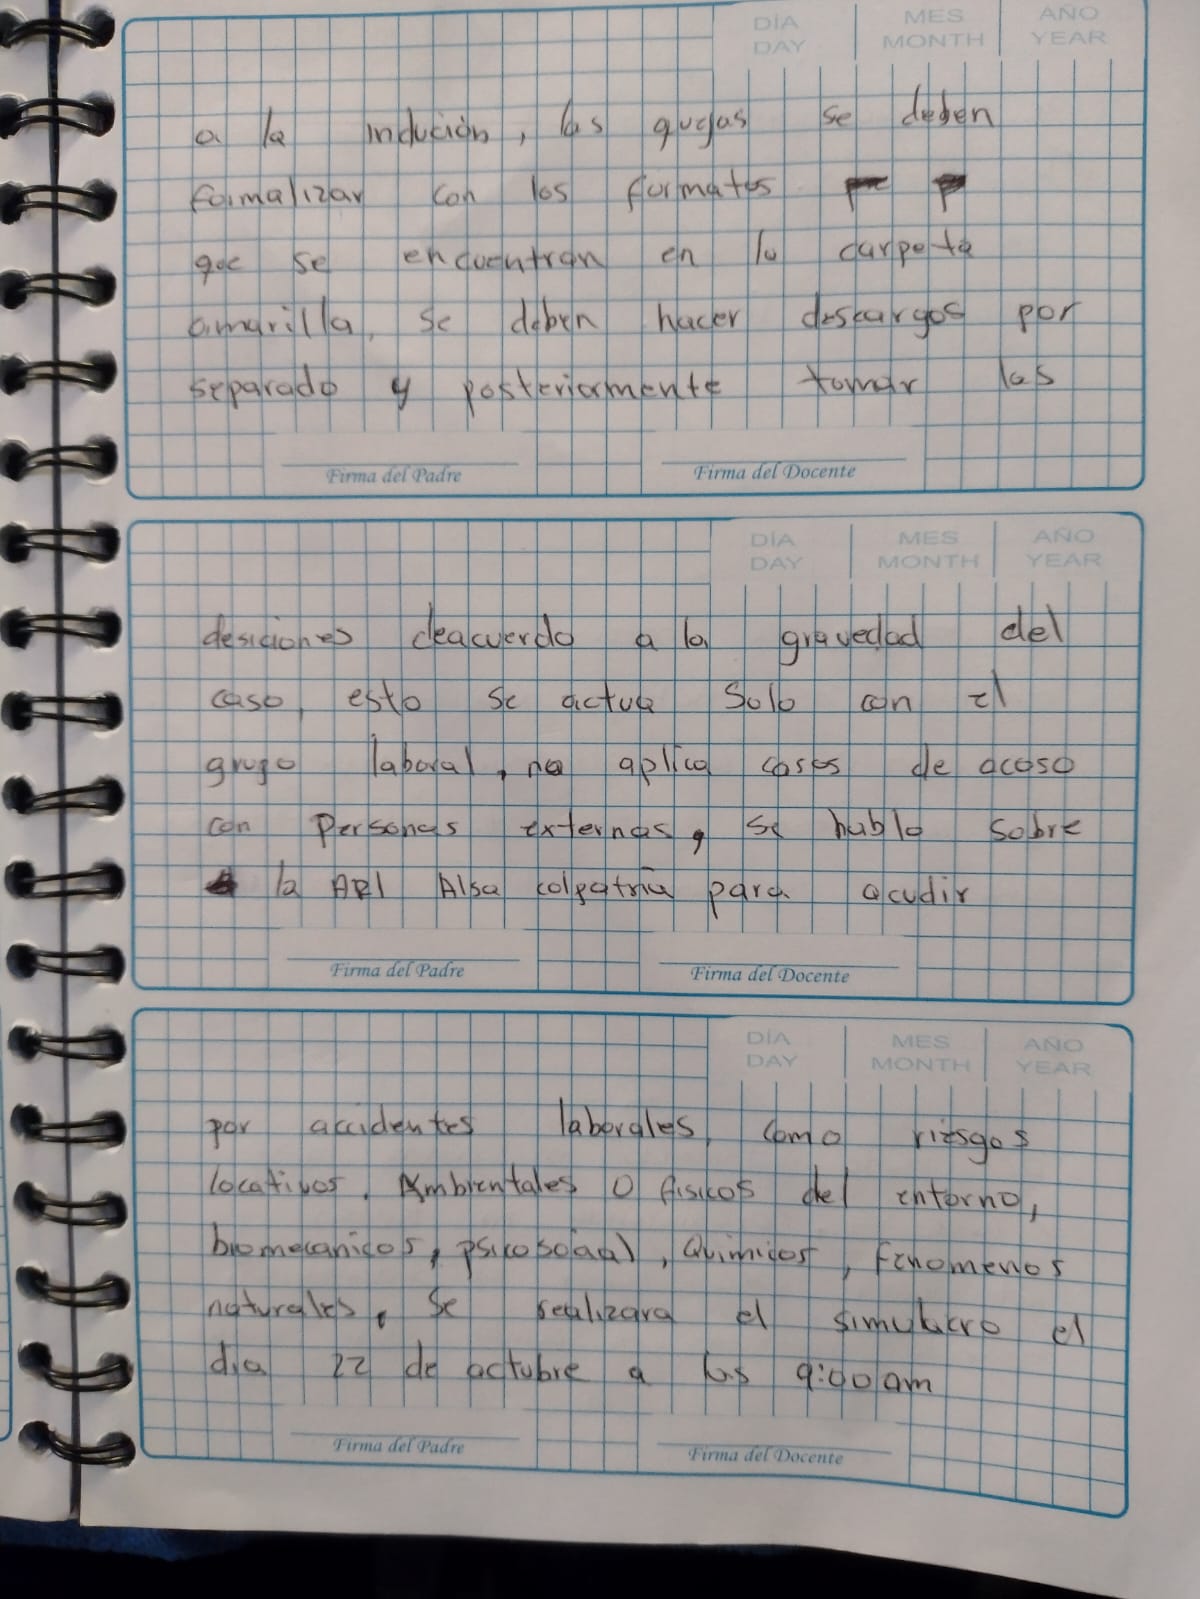 DÍA MES AÑO
DAY MONTH YEAR
a la indución, las quejas se deben
formalizar con los formatos
que se encuentran en la carpeta
amarilla, se deben hacer descargos por
separado y posteriormente tomar las
Firma del Padre Firma del Docente
DÍA MES AÑO
DAY MONTH YEAR
desiciones deacuerdo a la gravedad del
caso, esto se actua solo con el
grupo laboral, no aplica casos de acoso
con personas externas, se hablo sobre
la ARL Alsa colpatria para acudir
Firma del Padre Firma del Docente
DÍA MES AÑO
DAY MONTH YEAR
por accidentes laborales, como riesgos
locativos, Ambientales o fisicos del entorno,
biomecanicos, psicosocial, Quimicos, Fenomenos
naturales, se realizara el simulacro el
dia 22 de octubre a las 9:00am
Firma del Padre Firma del Docente